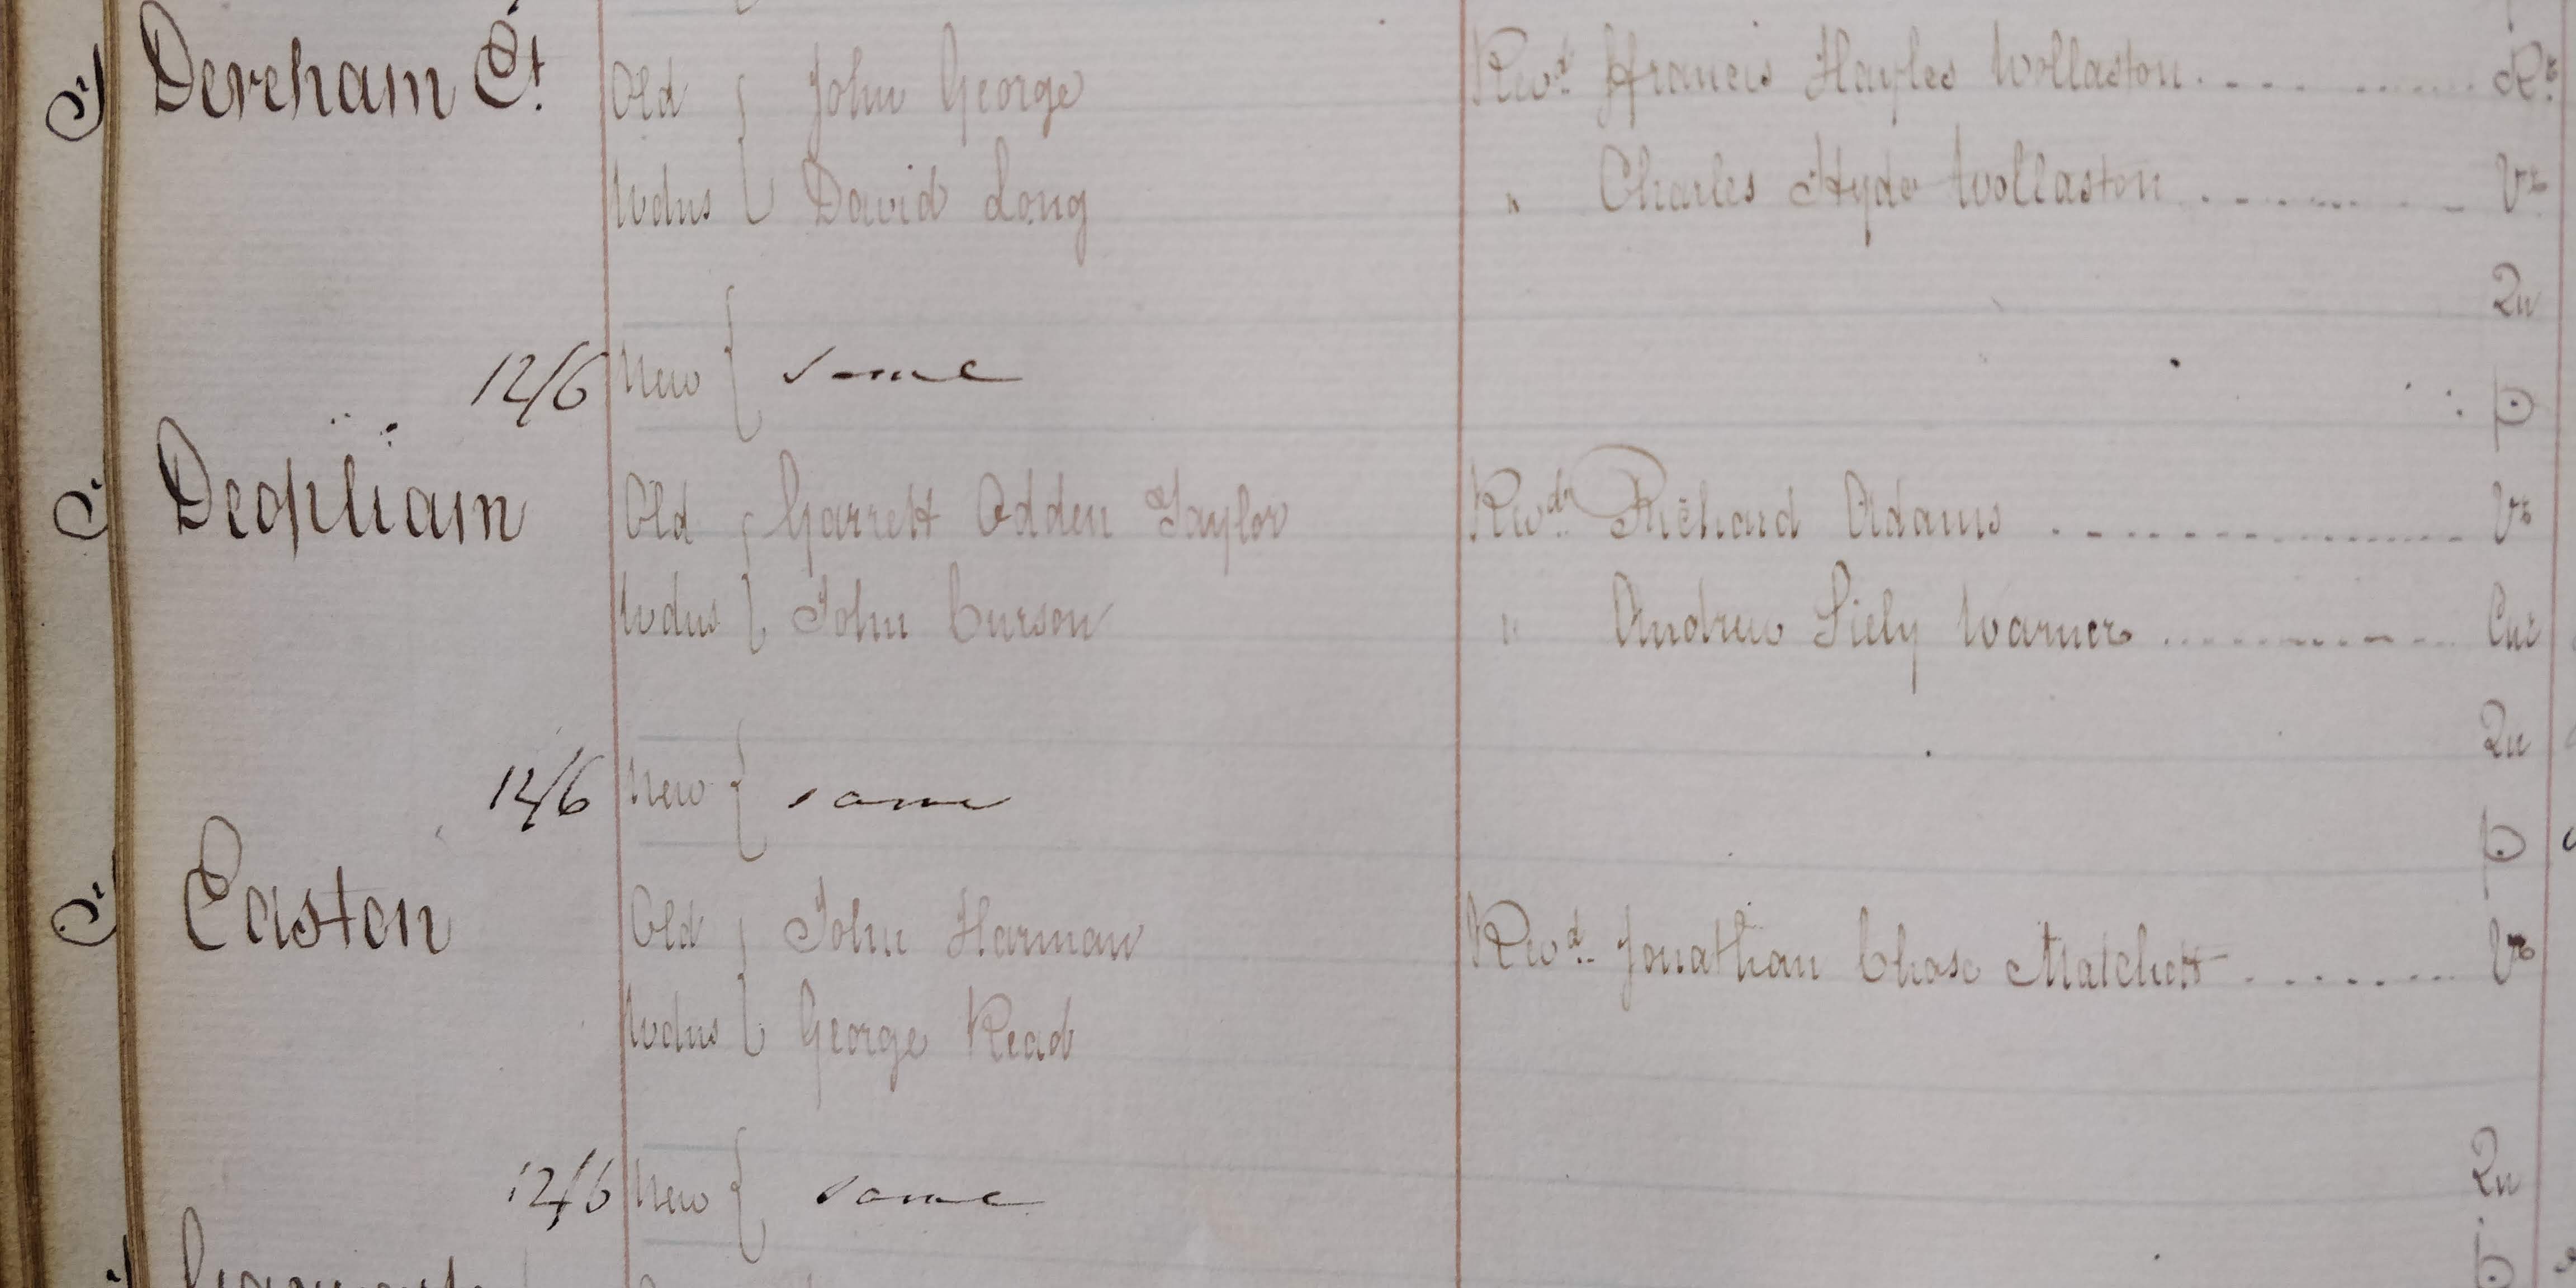 Dereham Et. Old John George Revd. Ffrancis Hayles Wollaston Rr.
Wdns David Long " Charles Hyde Wollaston Vr
Qu
12/6 New same
P
Deopham Old Garrett Odden Taylor Revd. Richard Adams Vr
Wdns John Curson " Andrew Siely Warner Cur
Qu
12/6 New same
P
Easton Old John Harman Revd. Jonathan Chase Matchett Vr
Wdns George Read
Qu
12/6 New same
P